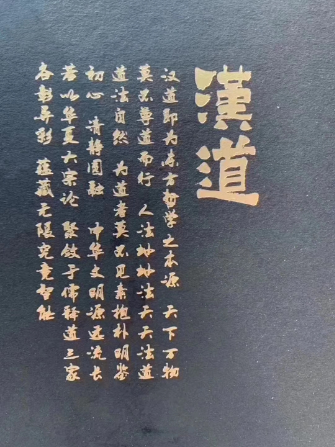 漢道
汉道即为东方哲学之本源 天下万物
莫不尊道而行 人法地地法天天法道
道法自然 为道者莫不见素抱朴明鉴
初心 清静圆融 中华文明源远流长
若以华夏大宗论 聚敛于儒释道三家
各彰异彩 蕴藏无限究竟智能